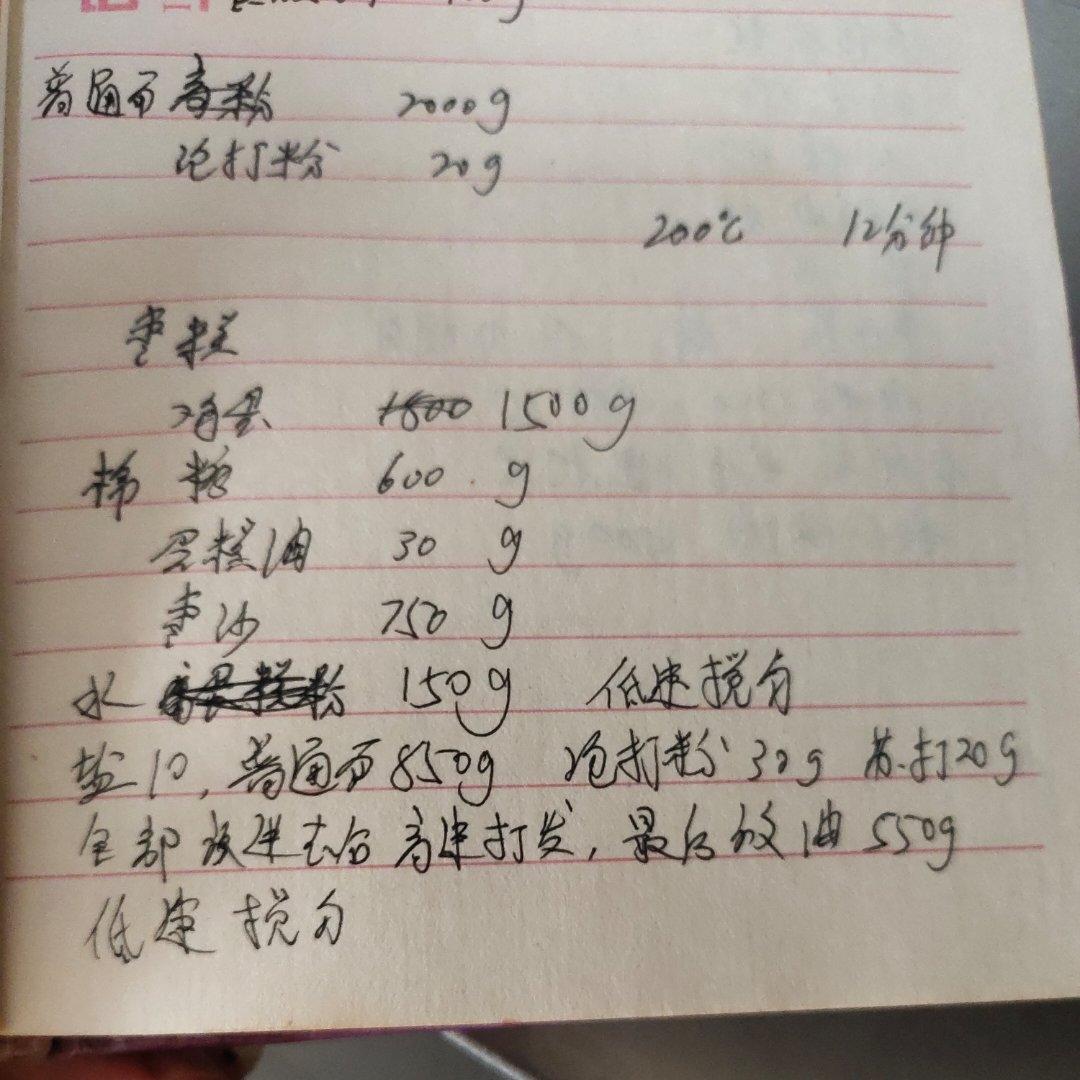 普通面 2000g
泡打粉 20g
200℃ 12分钟
枣糕
鸡蛋 1800 1500g
棉糖 600g
蛋糕油 30g
枣沙 750g
水 150g 低速搅匀
盐10,普通面850g 泡打粉30g 苏打20g
全部放进去后高速打发,最后放油550g
低速搅匀